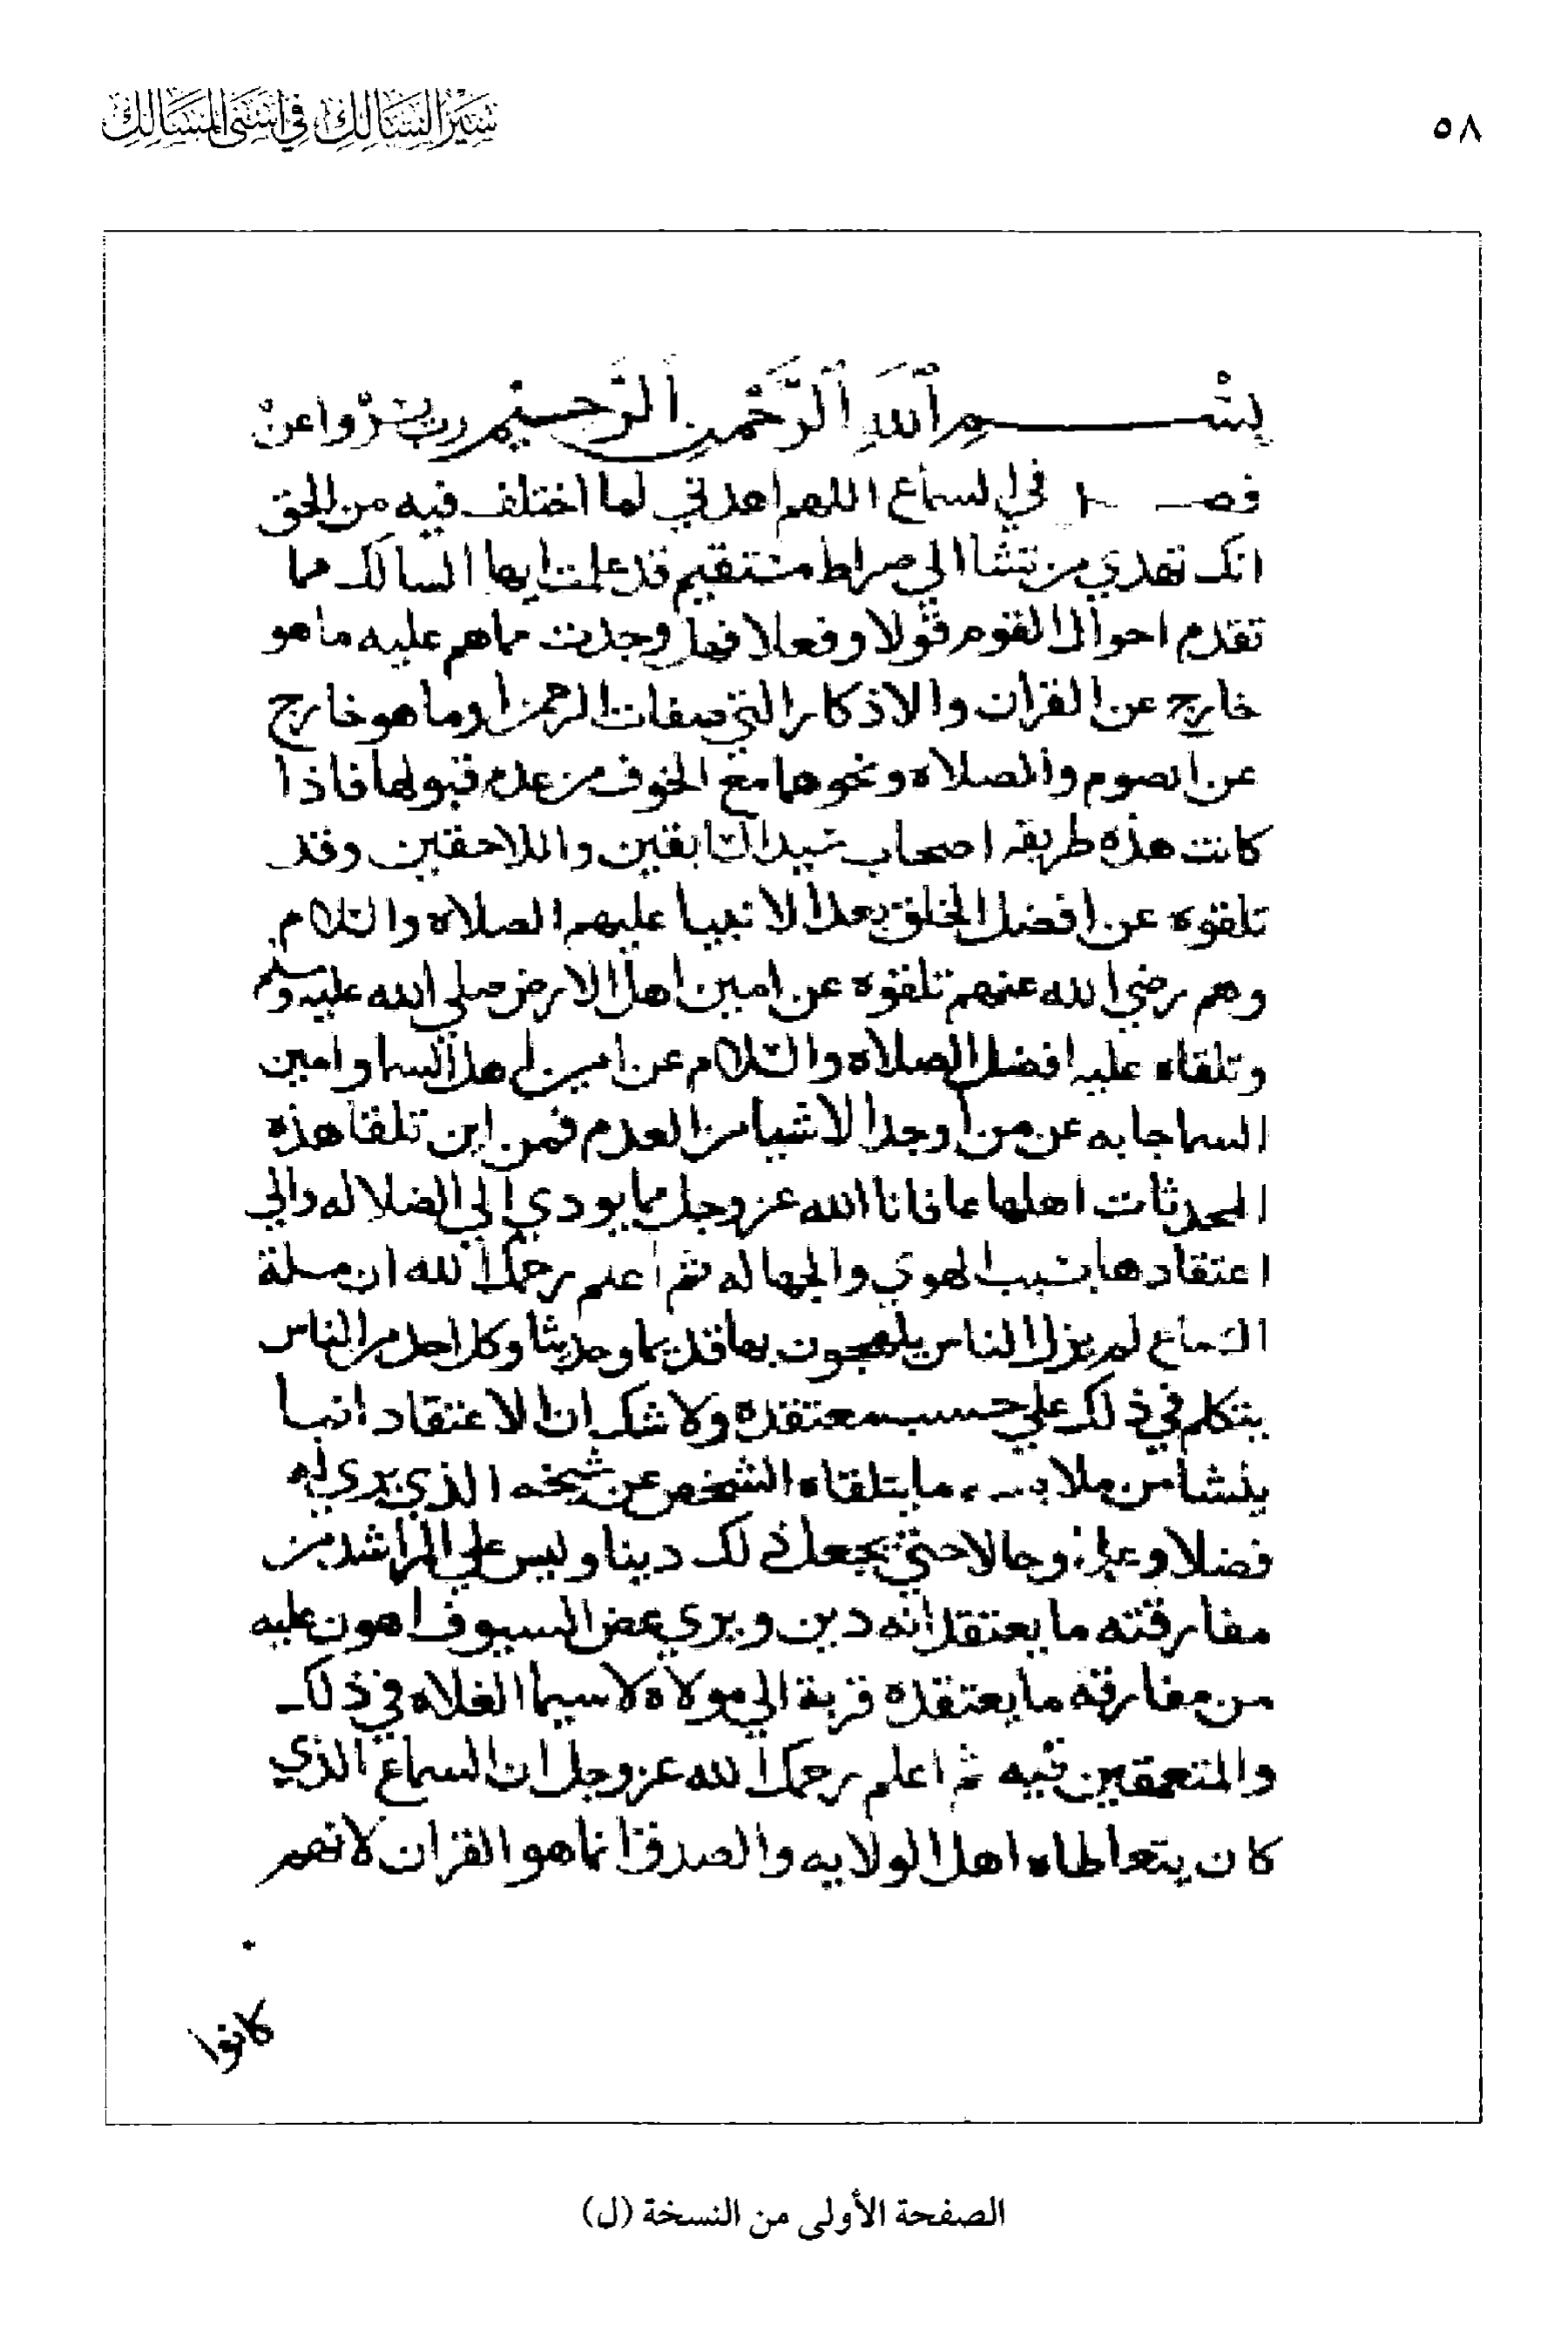 ٥٨
سير السالك في أسنى المسالك
بِسْمِ اللَّهِ الرَّحْمٰنِ الرَّحِيمِ رب يسر واعن
فصل في السماع اللهم اهدني لما اختلف فيه من الحق
انك تهدي من تشا الي صراط مستقيم قد علمت ايها السالك مما
تقدم احوال القوم قولا وفعلا فهل وجدت مماهم عليه ما هو
خارج عن القران والاذكار التي صفات الرحمن او ما هو خارج
عن الصوم والصلاه ونحوهما مع الخوف من عدم قبولها فاذا
كانت هذه طريقه اصحاب سيد السابقين واللاحقين وقد
تلقوه عن افضل الخلق بعد الانبيا عليهم الصلاه والسلام
وهم رضي الله عنهم تلقوه عن امين اهل الارض صلي الله عليه وسلم
وتلقاه عليه افضل الصلاه والسلام عن امين اهل السما وامين
السما جا به عن من اوجد الاشيا من العدم فمن اين تلقا هذه
المحدثات اهلها عافانا الله عز وجل مما يودي الي الضلاله والي
اعتقادها بسبب الهوي والجهاله ثم اعلم رحمك الله ان مسلة
السماع لم يزل الناس يلهجون بها قديما وحديثا وكل احد من الناس
يتكلم في ذلك علي حسب معتقده ولا شك ان الاعتقاد انما
ينشا من ما يتلقاه الشخص عن شيخه الذي يري له
فضلا وعلما وحالا حتي يجعل ذلك دينا وليس علي المراشد من
مفارقته ما يعتقد انه دين ويري عض السيوف اهون عليه
من مفارقة ما يعتقده قربة الي مولاه لا سيما الغلاه في ذلك
والمتعمقين فيه ثم اعلم رحمك الله عز وجل ان السماع الذي
كان يتعاطاه اهل الولايه والصدق انما هو القران لانهم
كانوا
الصفحة الأولى من النسخة (ل)